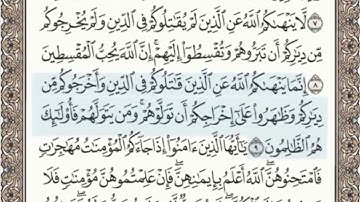 ٧ لَّا يَنْهَىٰكُمُ ٱللَّهُ عَنِ ٱلَّذِينَ لَمْ يُقَٰتِلُوكُمْ فِى ٱلدِّينِ وَلَمْ يُخْرِجُوكُم
مِّن دِيَٰرِكُمْ أَن تَبَرُّوهُمْ وَتُقْسِطُوٓا۟ إِلَيْهِمْ ۚ إِنَّ ٱللَّهَ يُحِبُّ ٱلْمُقْسِطِينَ
٨ إِنَّمَا يَنْهَىٰكُمُ ٱللَّهُ عَنِ ٱلَّذِينَ قَٰتَلُوكُمْ فِى ٱلدِّينِ وَأَخْرَجُوكُم مِّن
دِيَٰرِكُمْ وَظَٰهَرُوا۟ عَلَىٰٓ إِخْرَاجِكُمْ أَن تَوَلَّوْهُمْ ۚ وَمَن يَتَوَلَّهُمْ فَأُو۟لَٰٓئِكَ
هُمُ ٱلظَّٰلِمُونَ ٩ يَٰٓأَيُّهَا ٱلَّذِينَ ءَامَنُوٓا۟ إِذَا جَآءَكُمُ ٱلْمُؤْمِنَٰتُ مُهَٰجِرَٰتٍ
فَٱمْتَحِنُوهُنَّ ۖ ٱللَّهُ أَعْلَمُ بِإِيمَٰنِهِنَّ ۖ فَإِنْ عَلِمْتُمُوهُنَّ مُؤْمِنَٰتٍ فَلَا